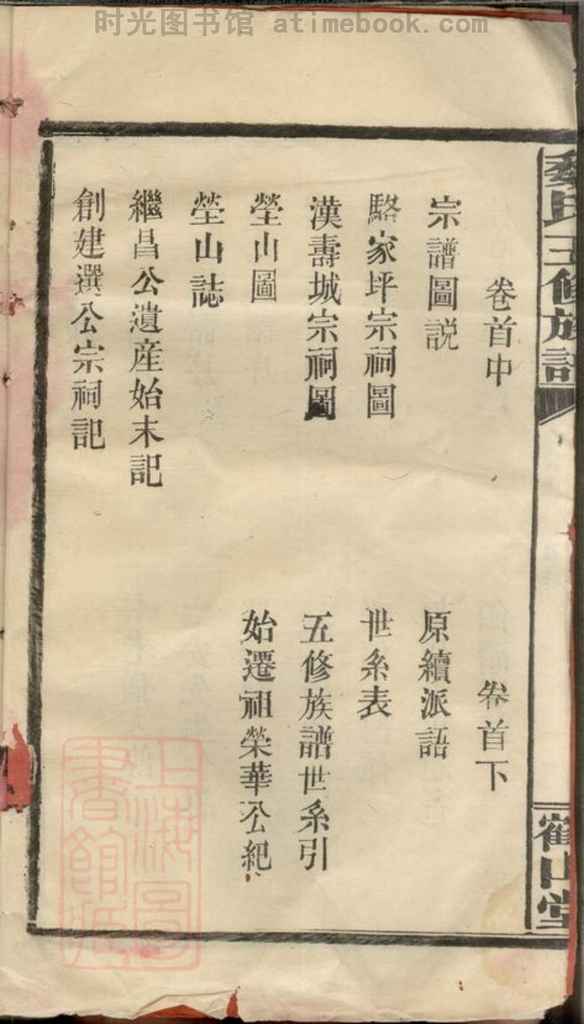 时光图书馆 atimebook.com
氏五修族譜
卷首中
宗譜圖説
駱家坪宗祠圖
漢壽城宗祠圖
塋山圖
塋山誌
繼昌公遺産始末記
創建選公宗祠記
卷首下
原續派語
世系表
五修族譜世系引
始遷祖榮華公紀
山堂
上海圖
書館藏